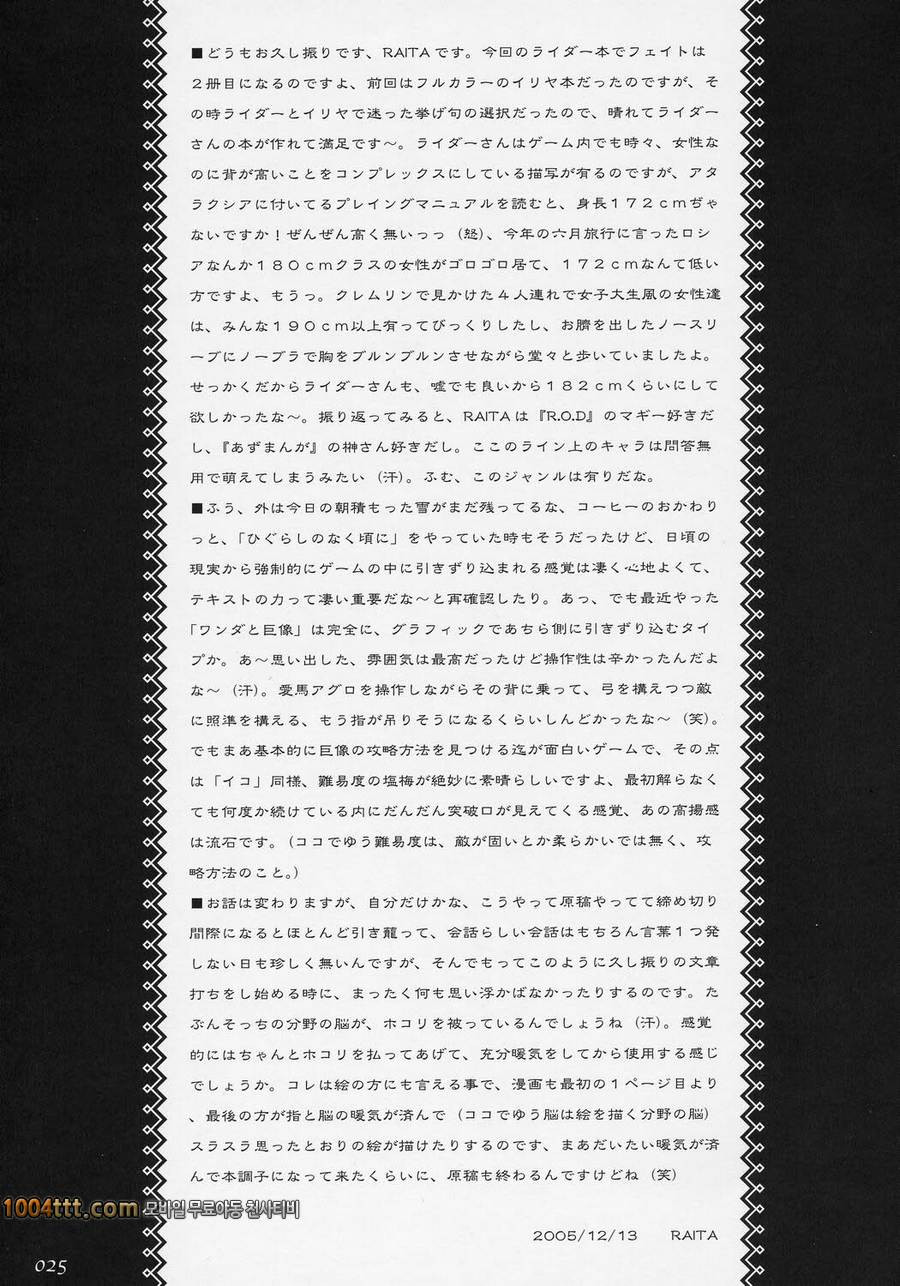 ■どうもお久し振りです、RAITAです。今回のライダー本でフェイトは
２冊目になるのですよ、前回はフルカラーのイリヤ本だったのですが、そ
の時ライダーとイリヤで迷った挙げ句の選択だったので、晴れてライダー
さんの本が作れて満足です〜。ライダーさんはゲーム内でも時々、女性な
のに背が高いことをコンプレックスにしている描写が有るのですが、アタ
ラクシアに付いてるプレイングマニュアルを読むと、身長１７２ｃｍぢゃ
ないですか！ぜんぜん高く無いっっ（怒）、今年の六月旅行に言ったロシ
アなんか１８０ｃｍクラスの女性がゴロゴロ居て、１７２ｃｍなんて低い
方ですよ、もうっ。クレムリンで見かけた４人連れで女子大生風の女性達
は、みんな１９０ｃｍ以上有ってびっくりしたし、お臍を出したノースリ
ーブにノーブラで胸をブルンブルンさせながら堂々と歩いていましたよ。
せっかくだからライダーさんも、嘘でも良いから１８２ｃｍくらいにして
欲しかったな〜。振り返ってみると、RAITAは『R.O.D』のマギー好きだ
し、『あずまんが』の榊さん好きだし。ここのライン上のキャラは問答無
用で萌えてしまうみたい（汗）。ふむ、このジャンルは有りだな。
■ふう、外は今日の朝積もった雪がまだ残ってるな、コーヒーのおかわり
っと、「ひぐらしのなく頃に」をやっていた時もそうだったけど、日頃の
現実から強制的にゲームの中に引きずり込まれる感覚は凄く心地よくて、
テキストの力って凄い重要だな〜と再確認したり。あっ、でも最近やった
「ワンダと巨像」は完全に、グラフィックであちら側に引きずり込むタイ
プか。あ〜思い出した、雰囲気は最高だったけど操作性は辛かったんだよ
な〜（汗）。愛馬アグロを操作しながらその背に乗って、弓を構えつつ敵
に照準を構える、もう指が吊りそうになるくらいしんどかったな〜（笑）。
でもまあ基本的に巨像の攻略方法を見つける迄が面白いゲームで、その点
は「イコ」同様、難易度の塩梅が絶妙に素晴らしいですよ、最初解らなく
ても何度か続けている内にだんだん突破口が見えてくる感覚、あの高揚感
は流石です。（ココでゆう難易度は、敵が固いとか柔らかいでは無く、攻
略方法のこと。）
■お話は変わりますが、自分だけかな、こうやって原稿やってて締め切り
間際になるとほとんど引き籠って、会話らしい会話はもちろん言葉１つ発
しない日も珍しく無いんですが、そんでもってこのように久し振りの文章
打ちをし始める時に、まったく何も思い浮かばなかったりするのです。た
ぶんそっちの分野の脳が、ホコリを被っているんでしょうね（汗）。感覚
的にはちゃんとホコリを払ってあげて、充分暖気をしてから使用する感じ
でしょうか。コレは絵の方にも言える事で、漫画も最初の１ページ目より
、最後の方が指と脳の暖気が済んで（ココでゆう脳は絵を描く分野の脳）
スラスラ思ったとおりの絵が描けたりするのです、まあだいたい暖気が済
んで本調子になって来たくらいに、原稿も終わるんですけどね（笑）
1004ttt.com 모바일 무료야동 천사티비
2005/12/13 RAITA
025